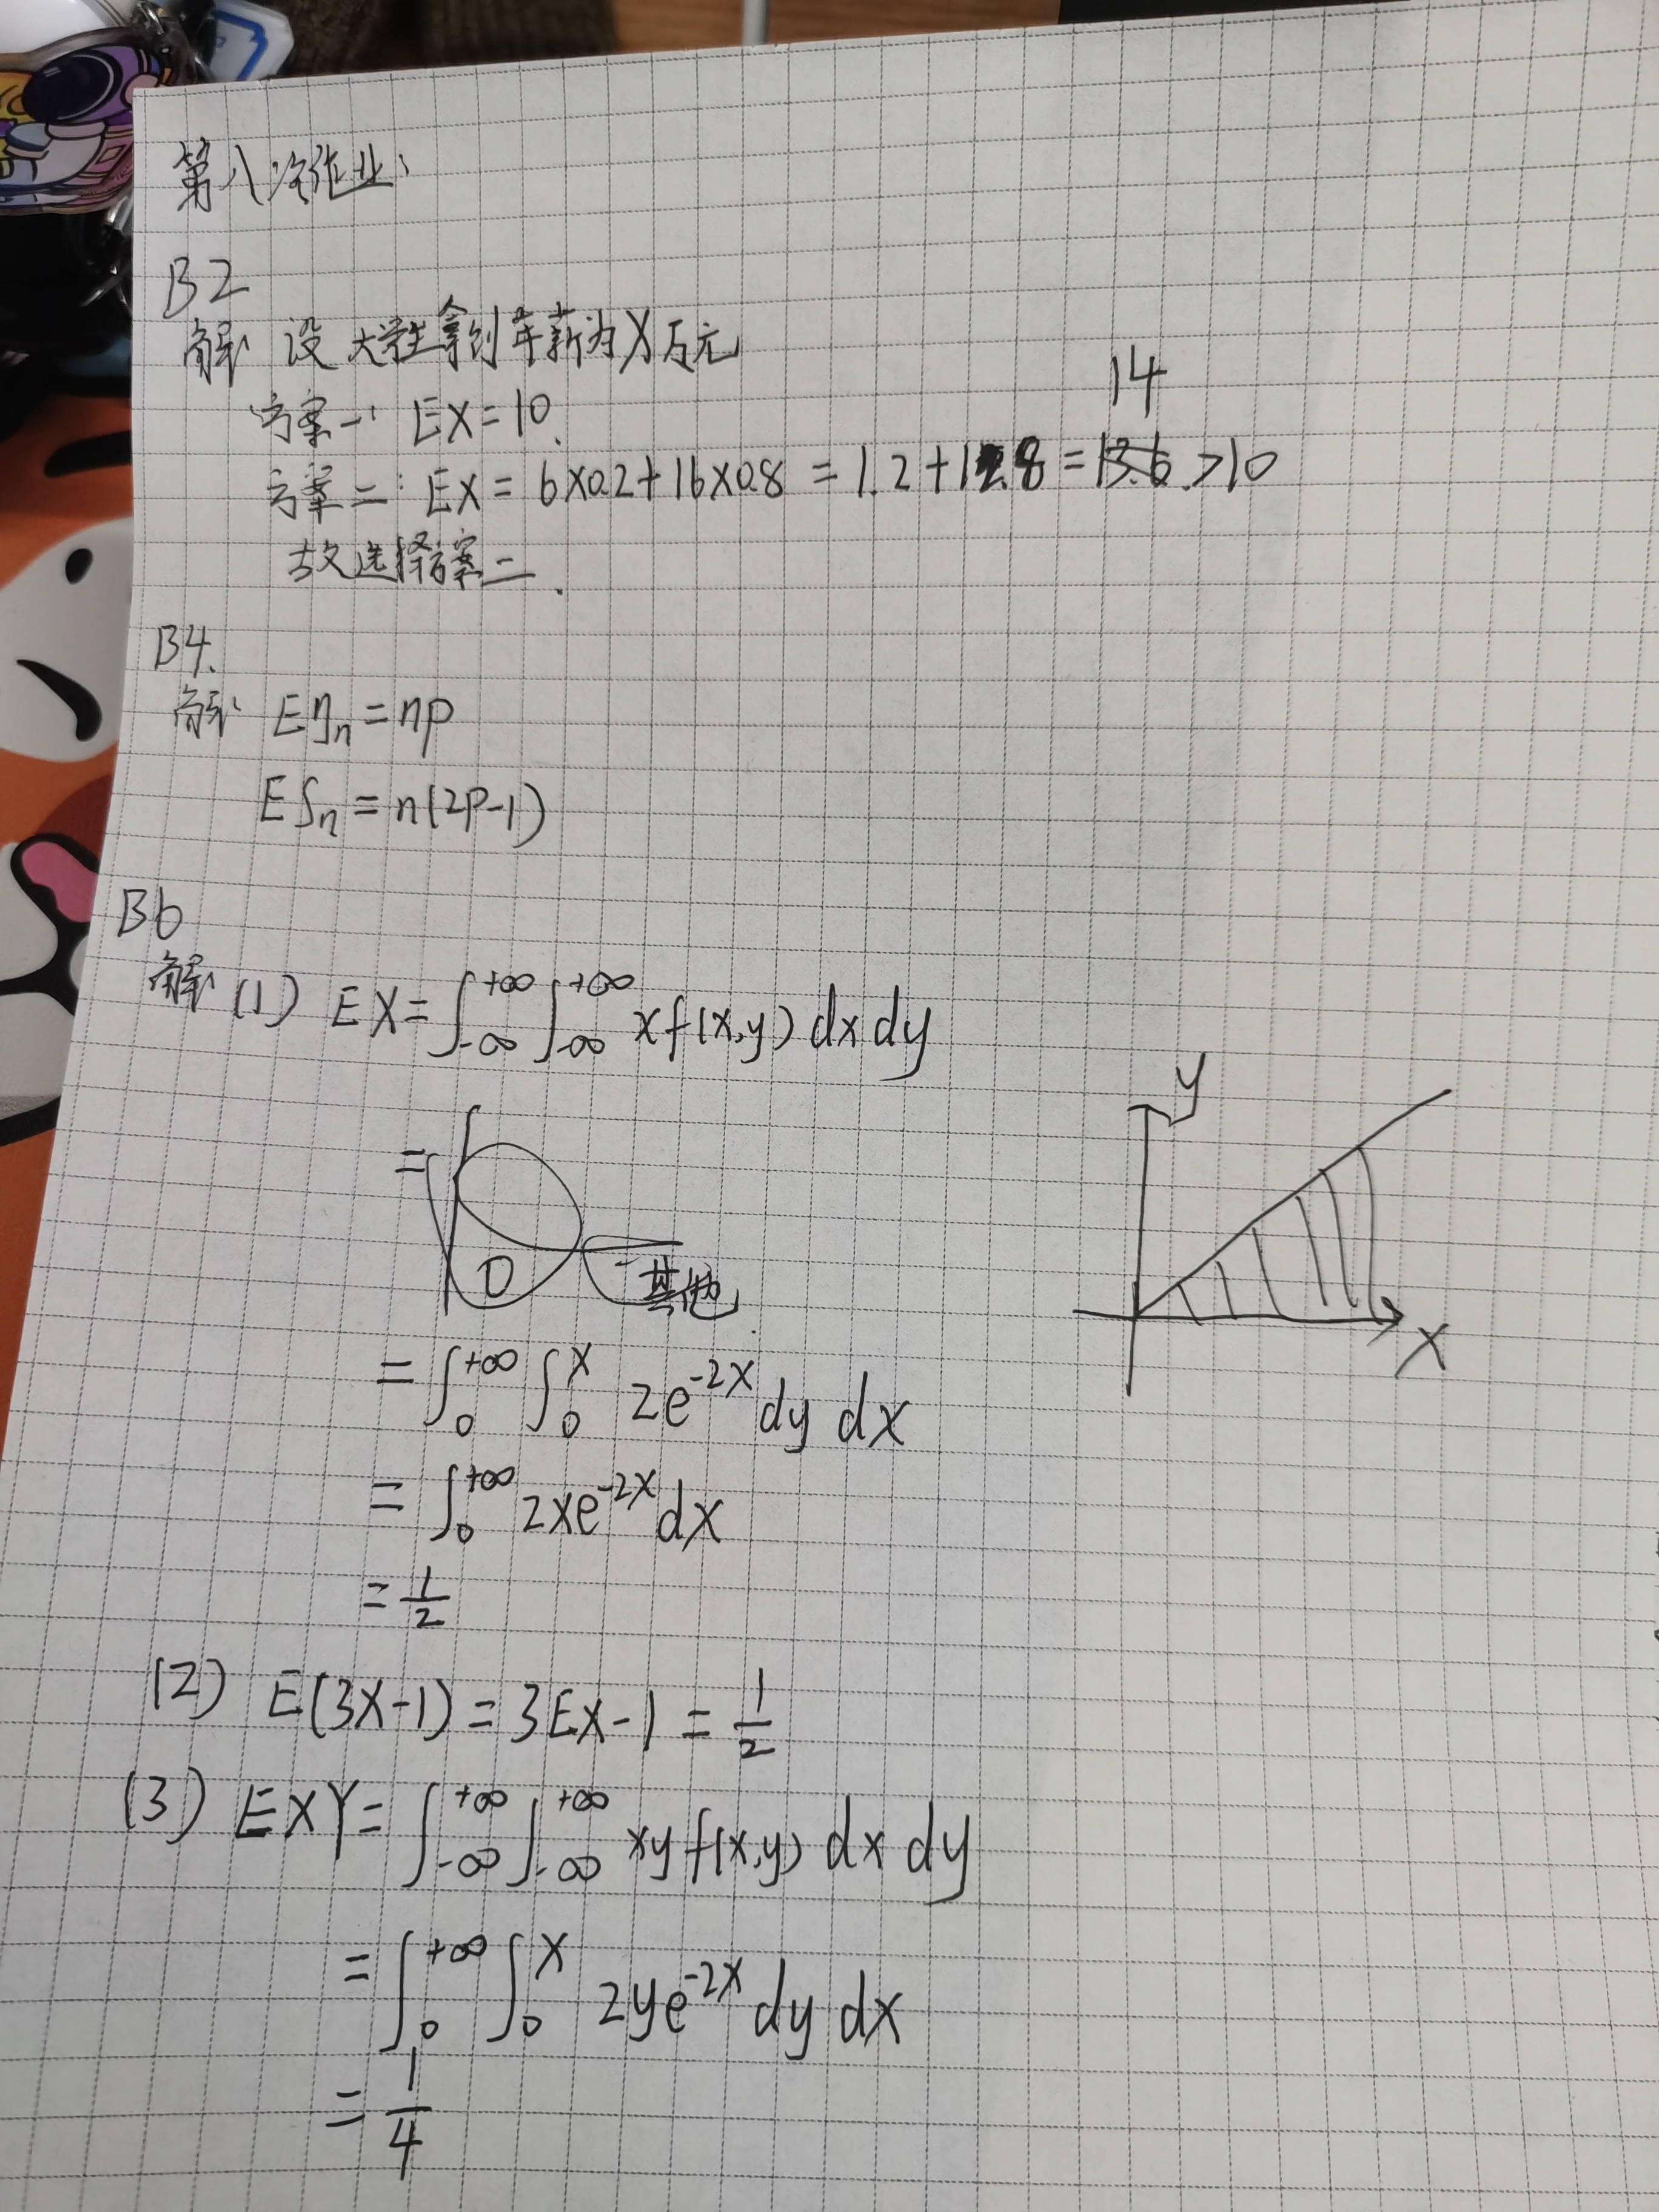 第八次作业:
B2
解: 设大学生拿到年薪为X万元
方案一: EX=10.
14
方案二: EX = 6×0.2+16×0.8 = 1.2+12.8 = 13.6 >10
故选择方案二.
B4.
解: Eηn = np
ESn = n(2p-1)
B6
解: (1) EX = ∫_{-∞}^{+∞} ∫_{-∞}^{+∞} x f(x,y) dx dy
y
x
= ∫_0^{+∞} ∫_0^x 2e^{-2x} dy dx
= ∫_0^{+∞} 2xe^{-2x} dx
= 1/2
(2) E(3X-1) = 3EX-1 = 1/2
(3) EXY = ∫_{-∞}^{+∞} ∫_{-∞}^{+∞} xy f(x,y) dx dy
= ∫_0^{+∞} ∫_0^x 2ye^{-2x} dy dx
= 1/4